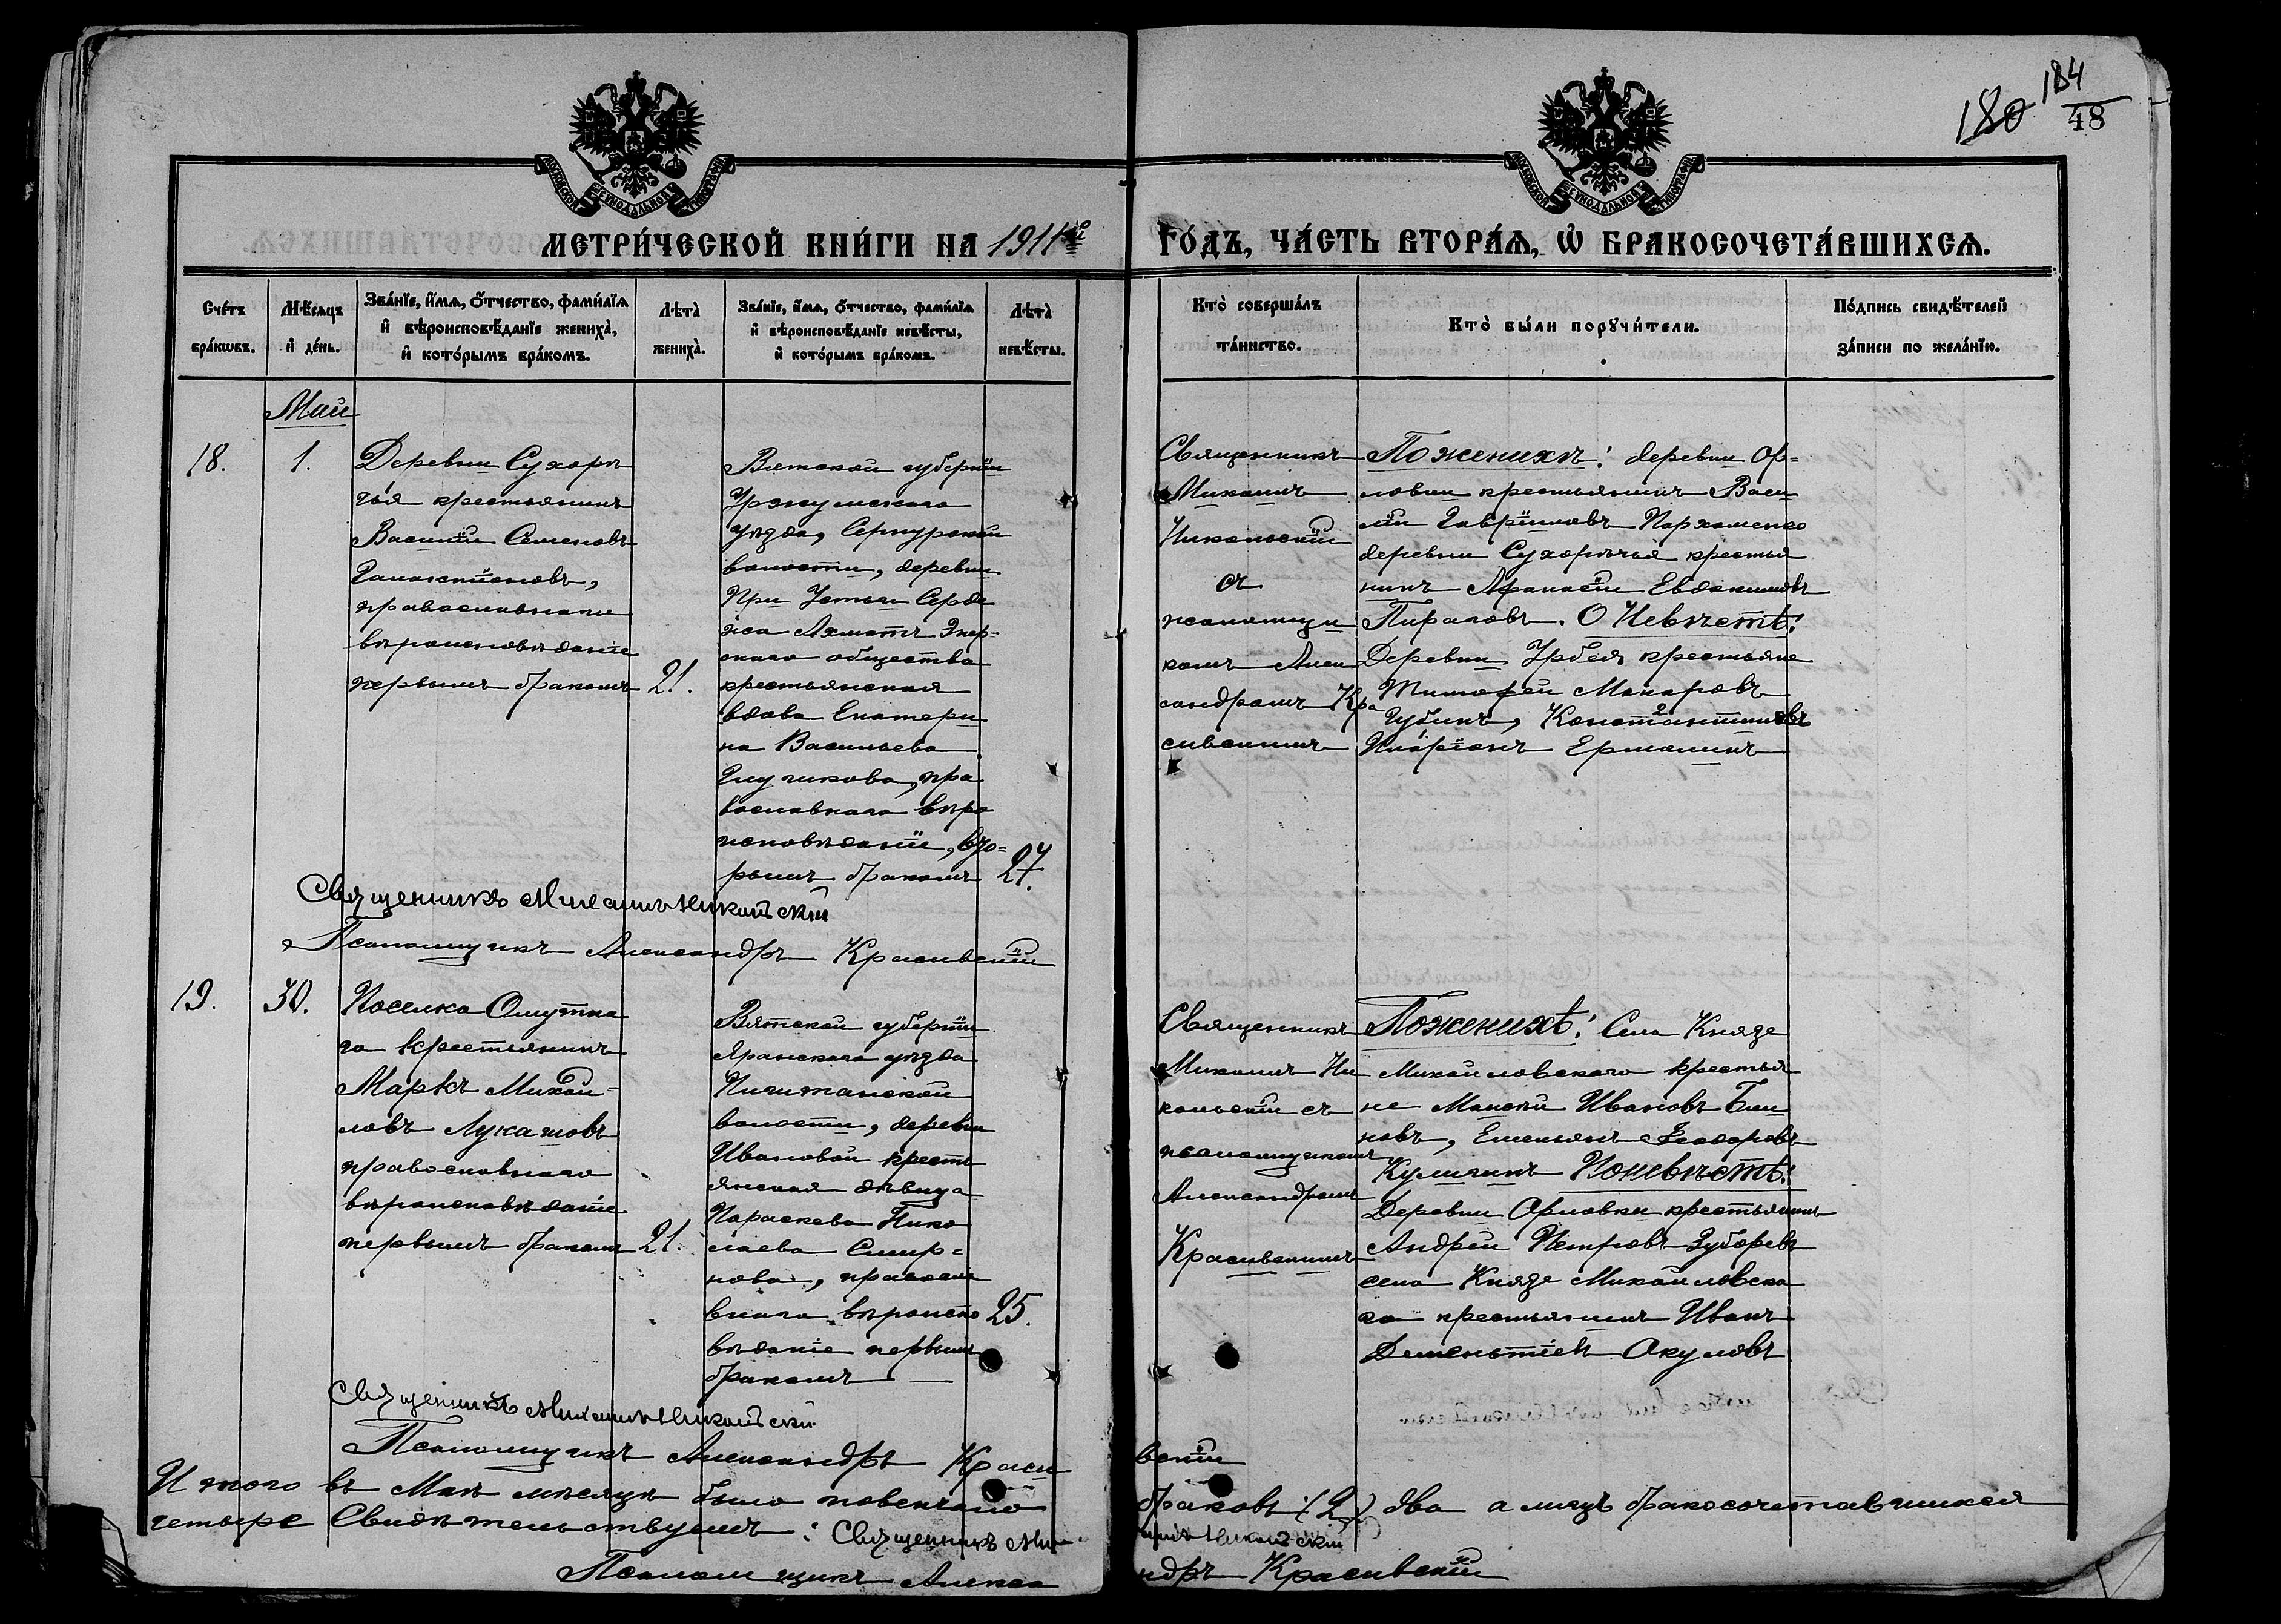 180 184
48
МОСКОВСКОЙ СѴНОДАЛЬНОЙ ТИПОГРАФІИ
МОСКОВСКОЙ СѴНОДАЛЬНОЙ ТИПОГРАФІИ
МЕТРИ́ЧЕСКОЙ КНИ́ГИ НА 1911й
ГО́ДЪ, ЧА́СТЬ ВТОРА́Ѧ, Ѡ҆ БРАКОСОЧЕТА́ВШИХСѦ.
Сче́тъ
бра́кѡвъ.
Мѣ́сѧцъ
и҆ де́нь.
Зва́нїе, и҆́мѧ, ѻ҆́тчество, фами́лїѧ
и҆ вѣроисповѣ́данїе жениха̀,
и҆ кото́рымъ бра́комъ.
Лѣта̀
жениха̀.
Зва́нїе, и҆́мѧ, ѻ҆́тчество, фами́лїѧ
и҆ вѣроисповѣ́данїе невѣ́сты,
и҆ кото́рымъ бра́комъ.
Лѣта̀
невѣ́сты.
Кто̀ соверша́лъ
та́инство.
Кто̀ бы́ли порꙋчи́тели.
По́дпись свидѣ́телей
за́писи по жела́нїю.
Май
18.
1.
Деревни Сухорѣ
чья крестьянинъ
Василій Семеновъ
Галактіоновъ,
православнаго
вѣроисповѣданіе
первымъ бракомъ
21.
Вятской губерніи
Уржумскаго
уѣзда, Сернурской
волости, деревни
При Устьи Серде
жа Ахматъ
скаго общества
крестьянская
вдова Екатери
на Васильева
Глушкова, пра
вославнаго вѣро
исповѣданіи, вто=
рымъ бракомъ
27.
Священникъ
Михаилъ
Никольскій
съ
псаломщи
комъ Алек
сандромъ Кра
сивскимъ
По женихѣ: деревни Ор=
ловки крестьянинъ Васи
лій Гавріиловъ Пархоменко
деревни Сухорѣчья крестья
нинъ Афанасій Евдокимовъ
Пираговъ. О Невѣстѣ:
Деревни Урбея крестьяне
Тимофей Макаровъ
Губинъ, Константиновъ
Иларіонъ Ермолинъ
Священникъ Михаилъ Никольскій
Псаломщикъ Александръ Красивскій
19.
30.
Поселка Омутна
го Крестьянинъ
Маркъ Михай=
ловъ Лукашовъ
православнаго
вѣроисповѣданіе
первымъ бракомъ
21.
Вятской губерніи
Яранскаго уѣзда
волости, деревни
Ивановой кресть
янская дѣвица
Параскева Нико
лаева Смир=
нова, правосла
внаго вѣроиспо
вѣданіе первымъ
бракомъ
25.
Священникъ
Михаилъ Ни
кольскій съ
псаломщикомъ
Александромъ
Красивскимъ
По женихѣ: Села Князе
Михайловскаго крестья
не Моисей Ивановъ Бли
новъ, Емельянъ Ѳеодоровъ
По невѣстѣ:
Деревни Орловки крестьянинъ
Андрей Петровъ Зубаревъ
села Князе Михайловска
го крестьянинъ Иванъ
Дементіевъ Окуловъ
Священникъ Михаилъ Никольскій
Псаломщикъ Александръ Красивскій
Итого въ Маѣ мѣсяцѣ было повенчано браковъ (2) два а лицъ бракосочетавшихся
четыре Свидѣтельствуемъ: Священникъ Михаилъ Никольскій
Псаломщикъ Александръ Красивскій